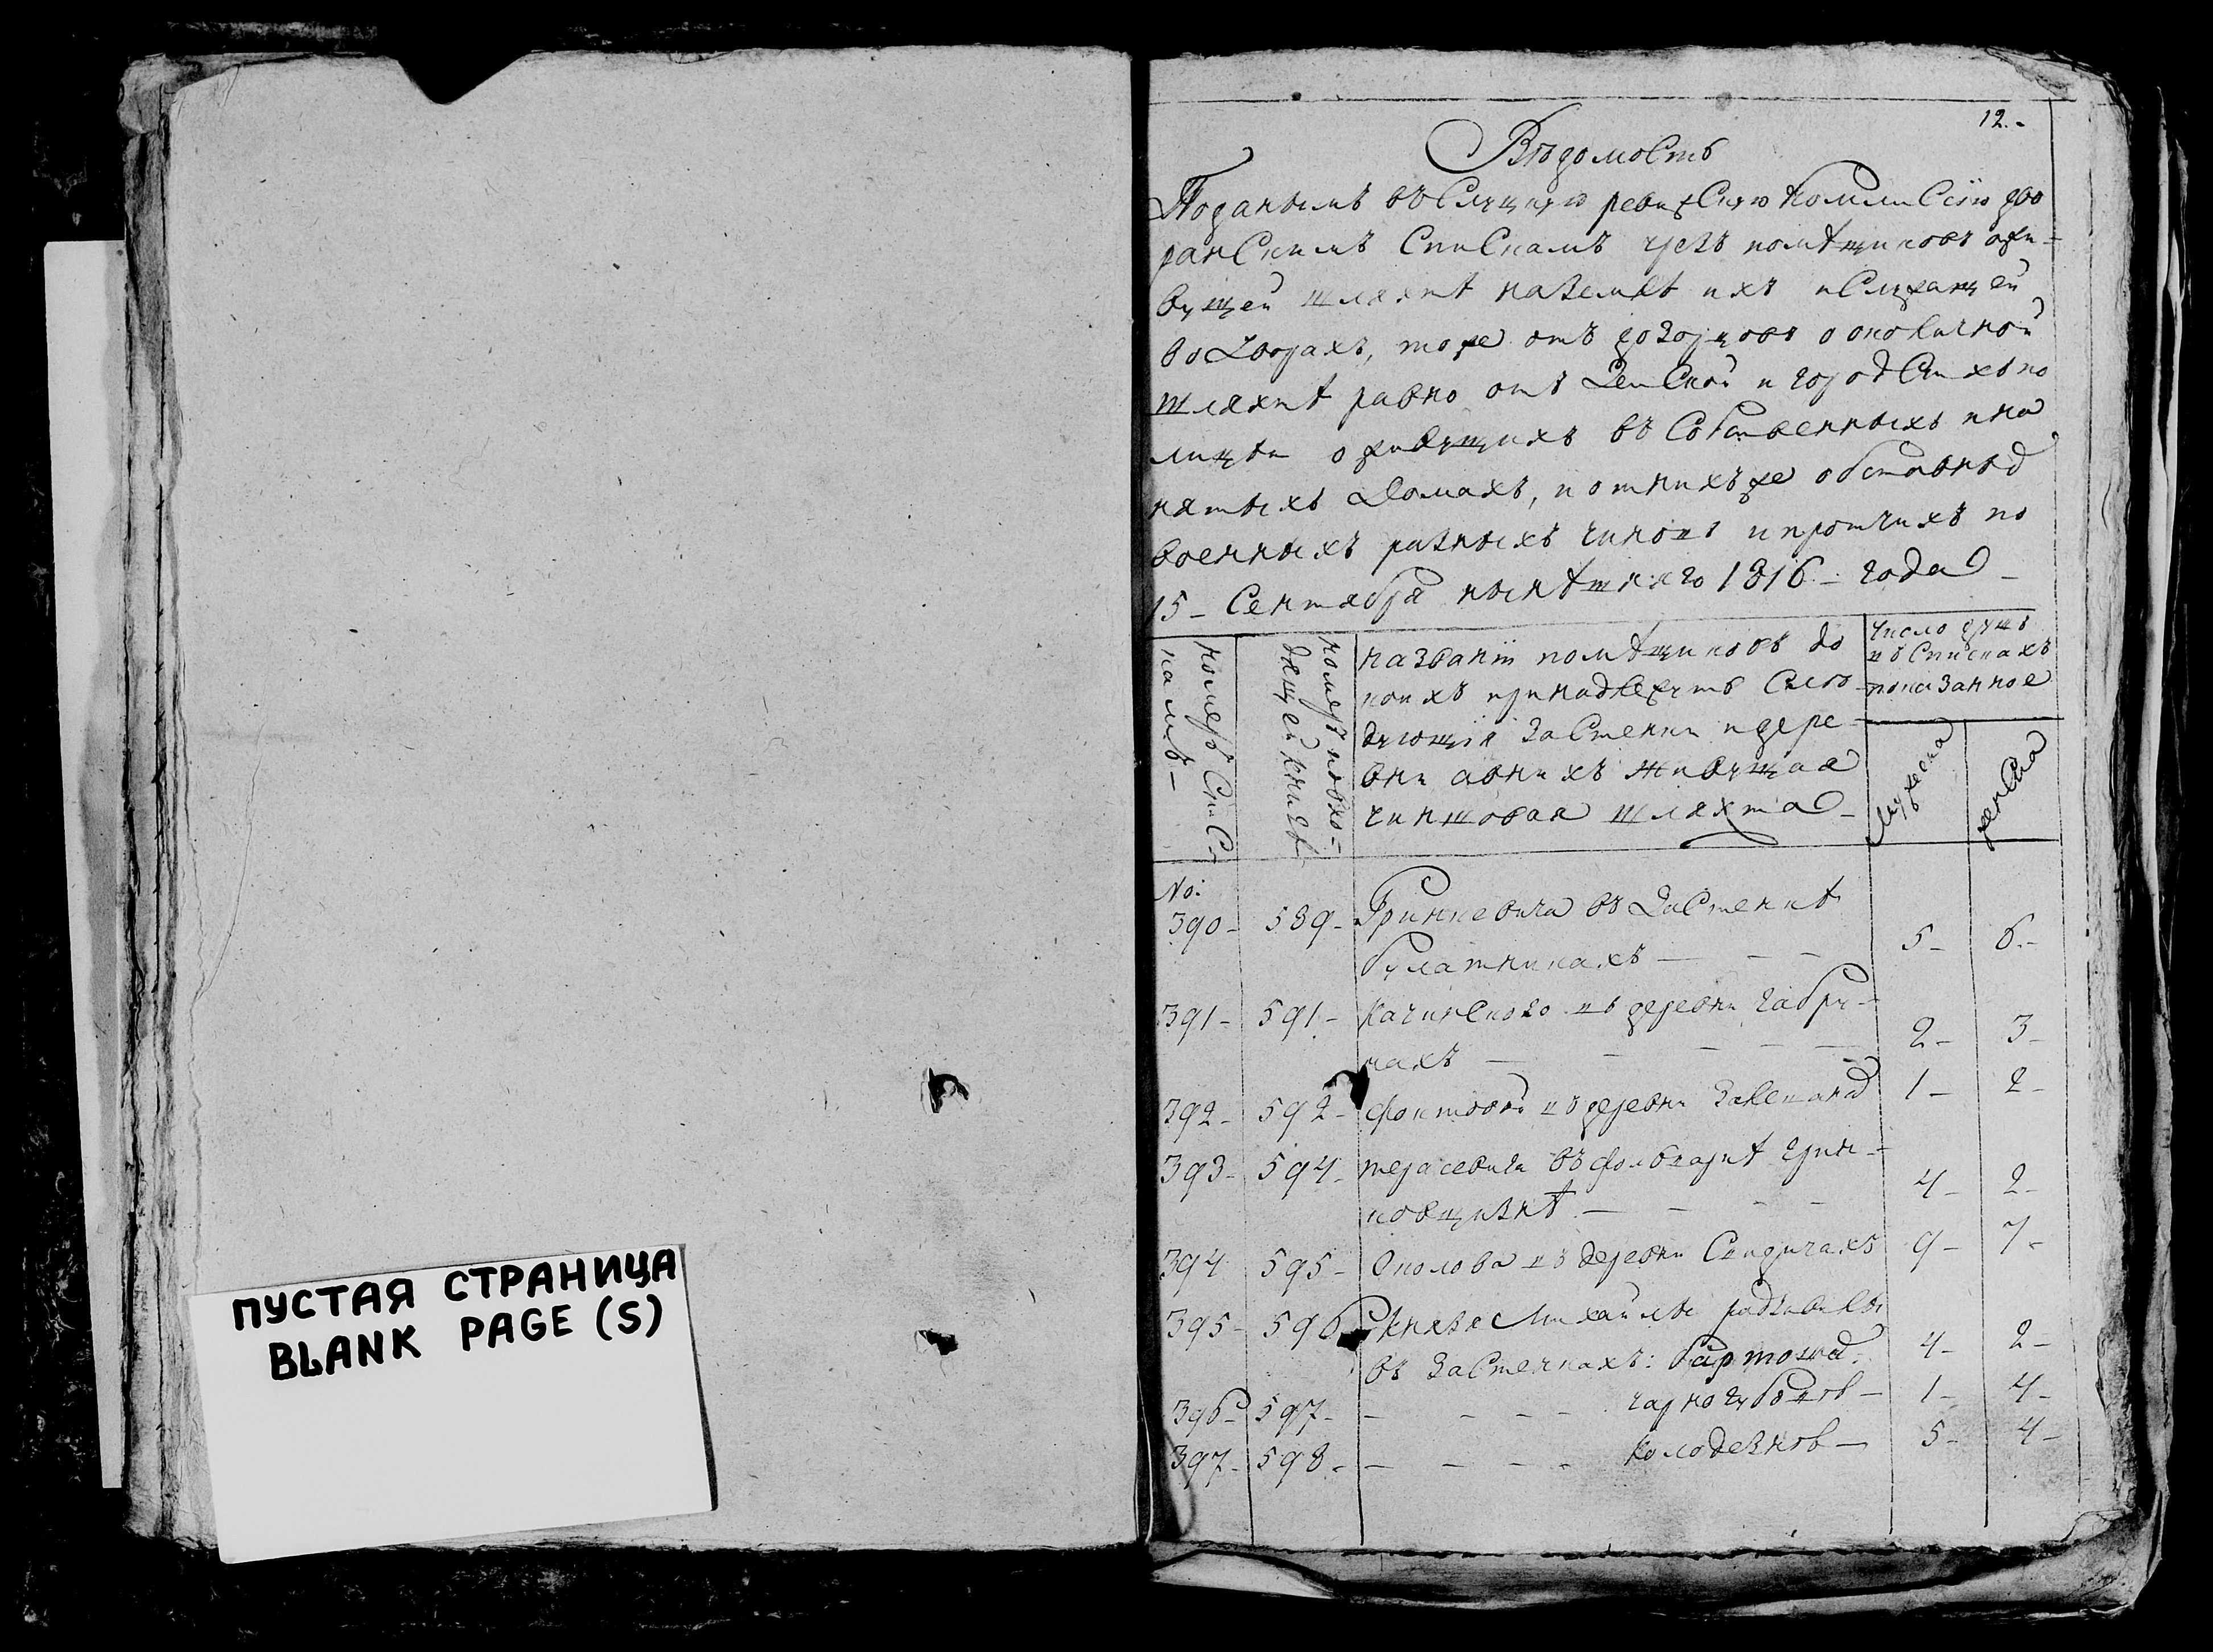 ПУСТАЯ СТРАНИЦА
BLANK PAGE (S)
12.-
Вѣдомость
Поданымъ въ Слуцкую ревизскую Коммисію дво
ранскимъ Спискамъ чрезъ помѣщиковъ ожи-
вущей шляхтѣ наземлѣ ихъ иСлужащей
во Дворахъ, тоже отъ дозорцовъ о околичной
шляхтѣ равно отъ Земской и городских по
лицеи о живущихъ въ Собственныхъ ина
нятыхъ Домахъ, и отнихъже обставныхъ
военныхъ разныхъ чиновъ ипротчихъ по
15- Сентября нынѣшняго 1816- года -
номеръ Спис
камъ-
номеръ повхо=
дящей книгѣ
названій помѣщиковъ до
коихъ принадлежитъ Слѣ-
дующія Застенки идере-
вни авнихъ Живущая
чиншовая шляхта -
число душъ
въ Спискахъ
показанное
Мужеска
женска
No:
390- 589- Гринкевича въ Застенкѣ
булатникахъ - - - 5- 6.-
391- 591- Качинского въ деревни габри-
кахъ - - - - - 2- 3-
392- 592- въ деревни 1- 2-
393- 594- терасевича въ фолваркѣ грин-
ковщизнѣ - - - - 4- 2-
394 595- Околова въ деревни 9- 7-
395- 596 князя Михайлы радзивилы
въ Застенкахъ: 4- 2-
396- 597- - - - - 1- 4-
397- 598- - - - - колодезков - 5- 4-